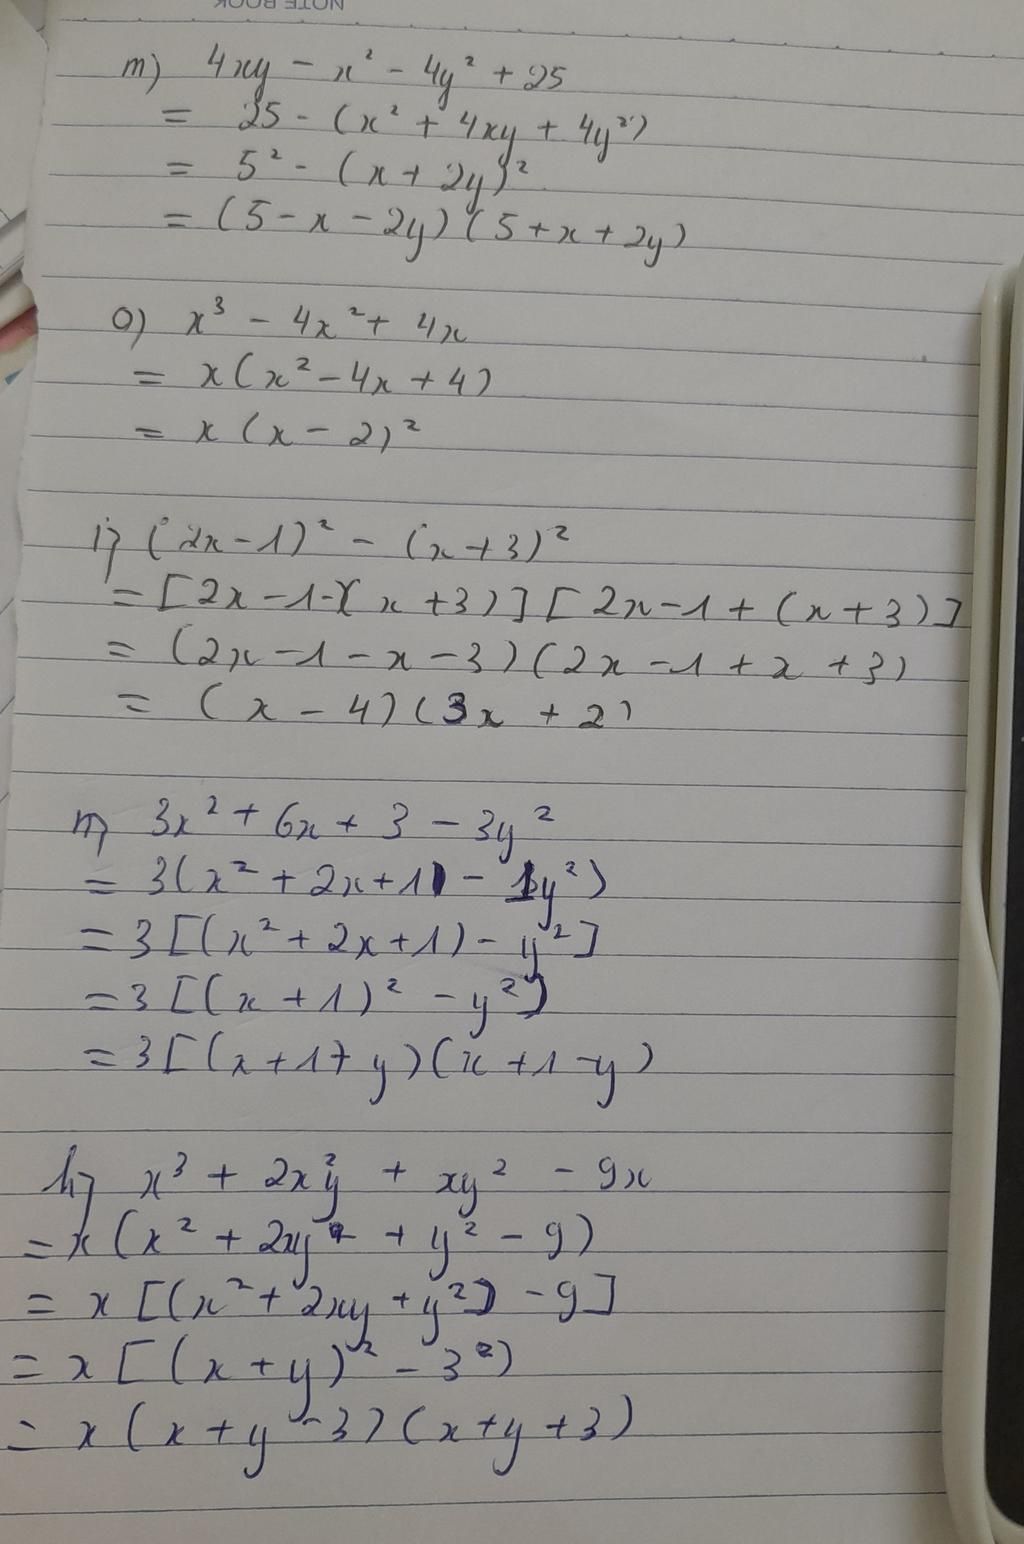 NOTE BOOK
m) 4xy - x² - 4y² + 25
= 25 - (x² + 4xy + 4y²)
= 5² - (x + 2y)²
= (5 - x - 2y) (5 + x + 2y)
o) x³ - 4x² + 4x
= x (x² - 4x + 4)
= x (x - 2)²
i) (2x - 1)² - (x + 3)²
= [2x - 1 - (x + 3)] [2x - 1 + (x + 3)]
= (2x - 1 - x - 3) (2x - 1 + x + 3)
= (x - 4) (3x + 2)
n) 3x² + 6x + 3 - 3y²
= 3(x² + 2x + 1 - 1y²)
= 3 [(x² + 2x + 1) - y²]
= 3 [(x + 1)² - y²)
= 3 [(x + 1 + y) (x + 1 - y)
h) x³ + 2x²y + xy² - 9x
= x (x² + 2xy + y² - 9)
= x [(x² + 2xy + y²) - 9]
= x [(x + y)² - 3²)
= x (x + y - 3) (x + y + 3)